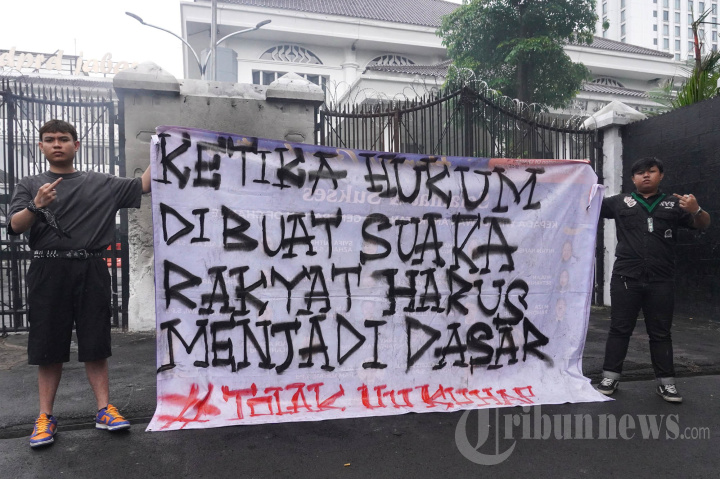 KETIKA HUKUM
DIBUAT SUAKA
RAKYAT HARUS
MENJADI DASAR
#TOLAK UU KUHAP
Tribunnews.com